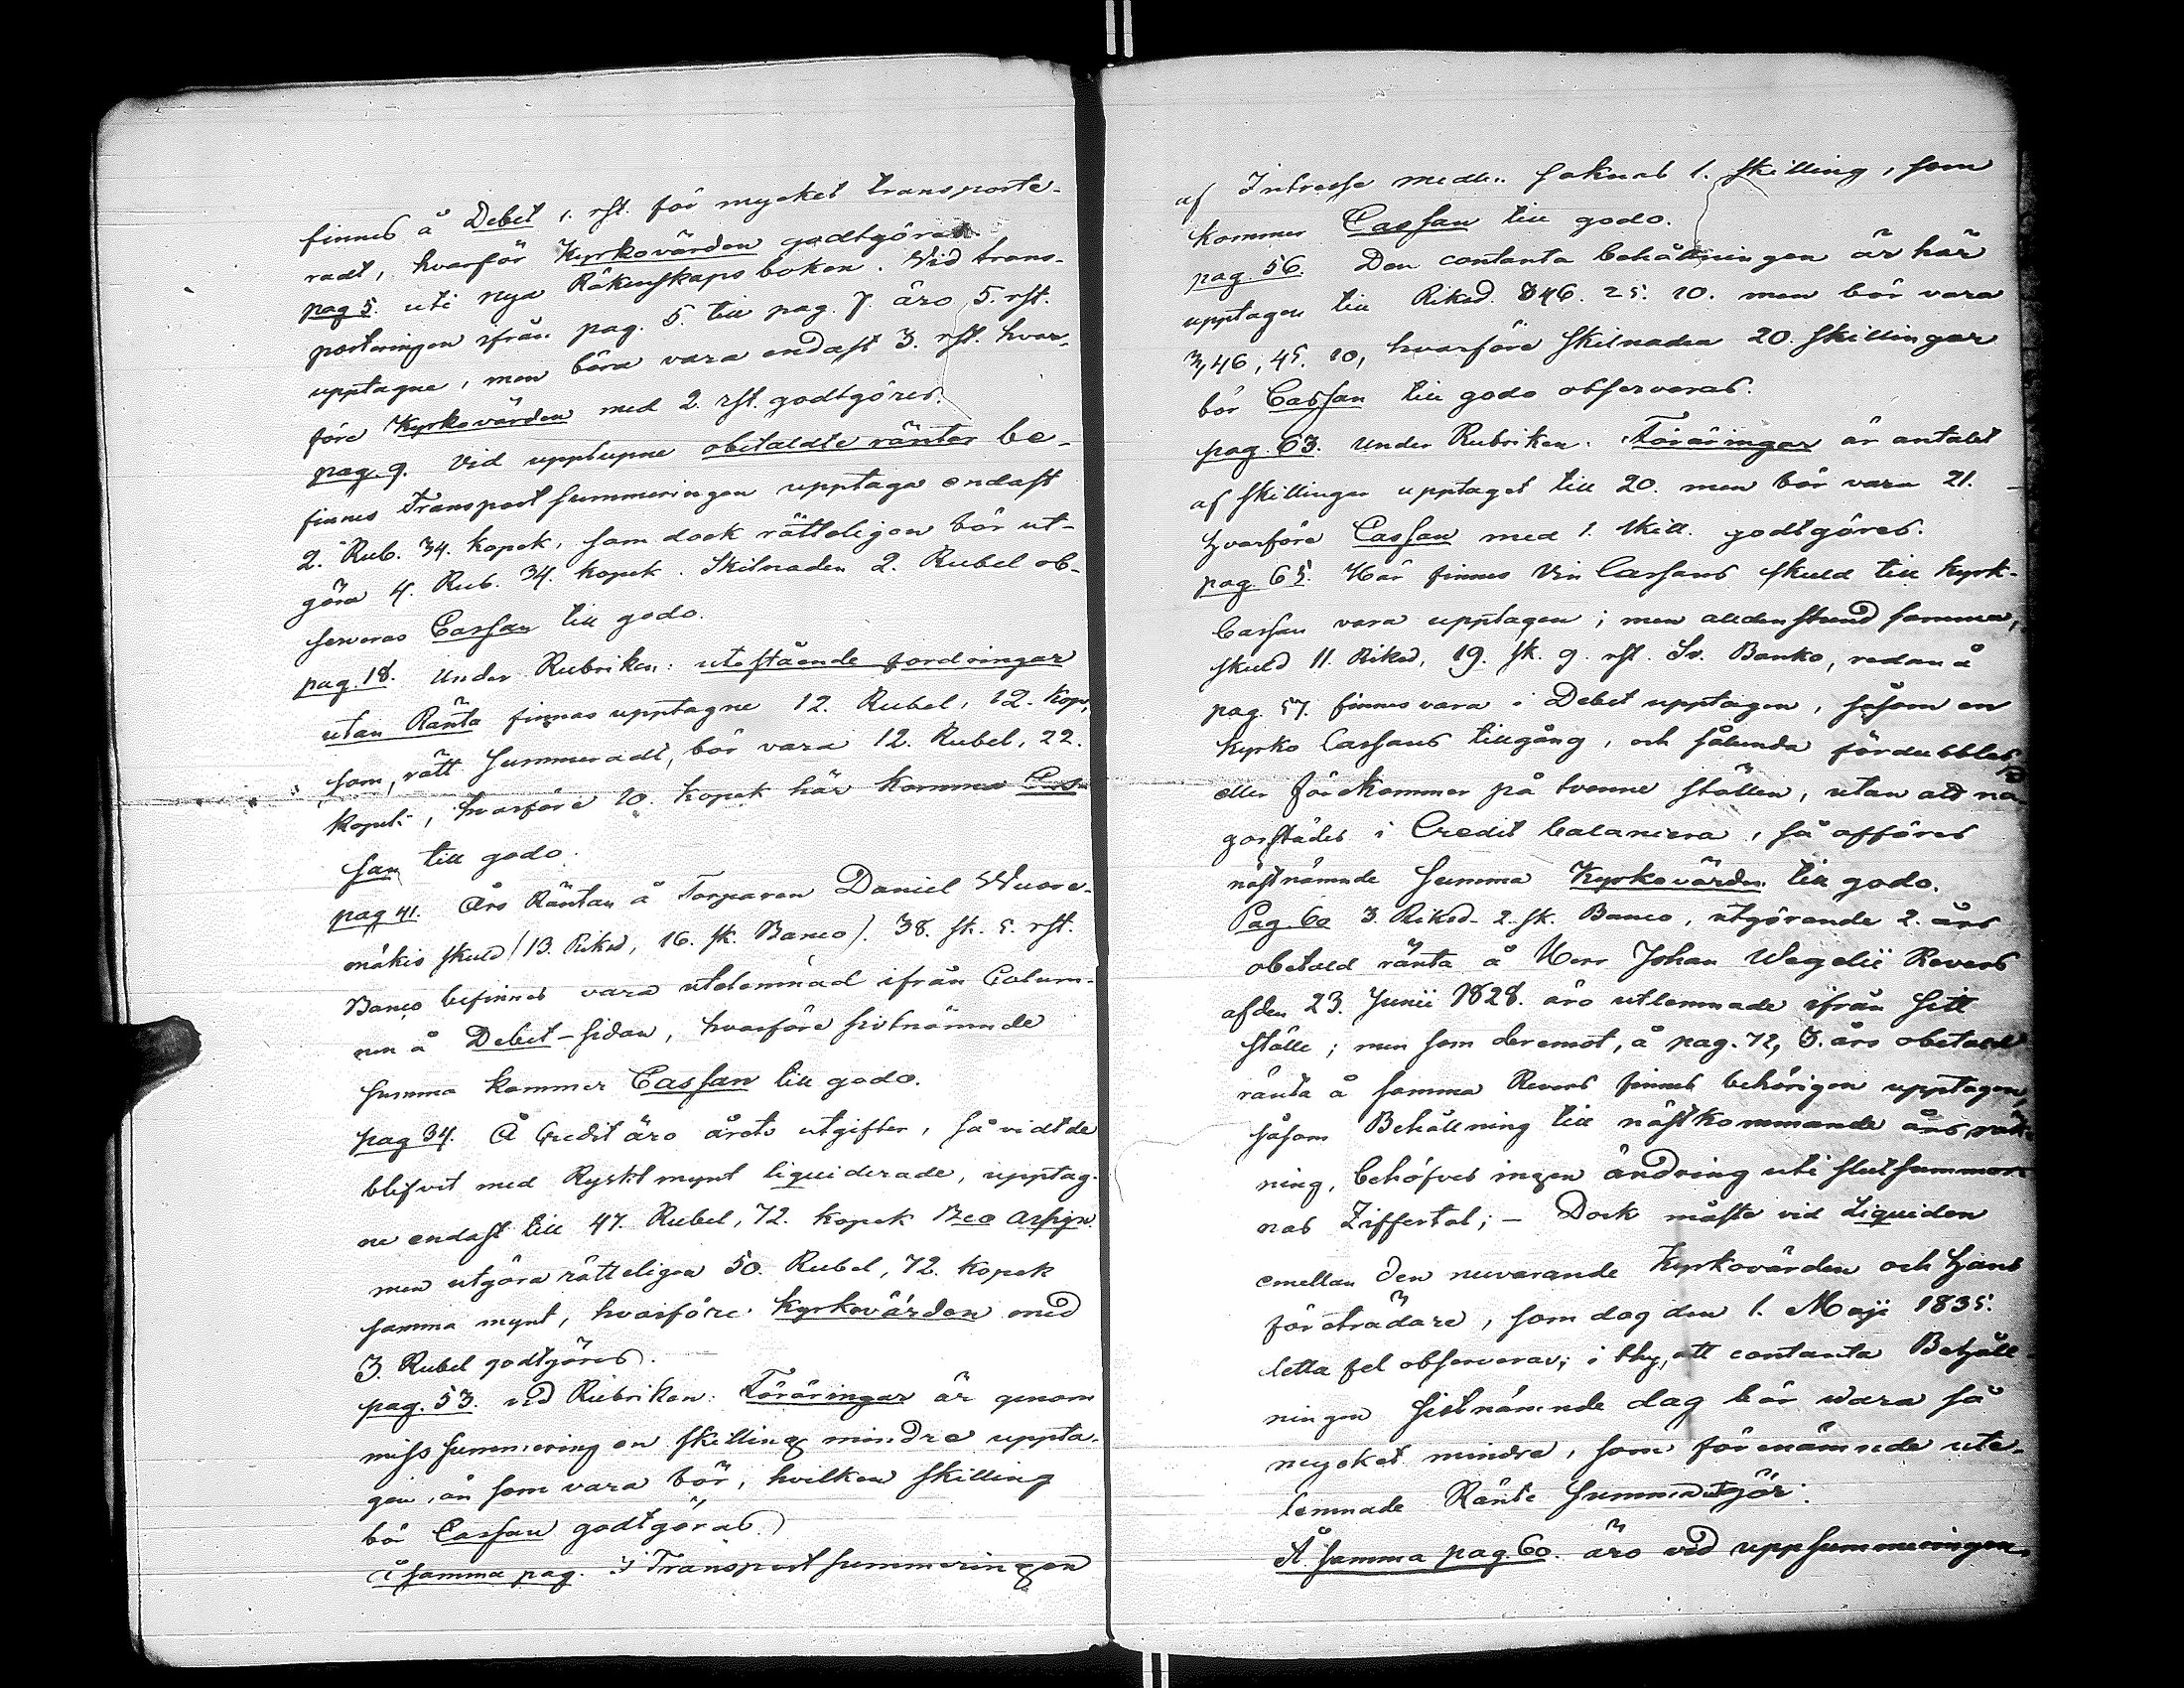 finnes å Debet 1. rst. för mycket transporte-
radt, hvarför Kyrkovärden godtgöres.
pag 5. uti nya Räkenskaps boken. Vid trans-
porteringen ifrån pag. 5. till pag. 7. äro 5. rst.
upptagne, men böra vara endast 3. rst. hvar-
före Kyrkovärden med 2. rst. godtgöres.
pag. 9. Vid upplupne obetaldte räntor be-
finnes Transport summeringen upptaga endast
2. Rub. 34. kopek, som dock rätteligen bör ut-
göra 4. Rub. 34. kopek. Skilnaden 2. Rubel ob-
serveras Cassan till godo.
pag. 18. Under Rubriken: utestående fordringar
utan Ränta finnas upptagne 12. Rubel, 12. kop,
som, rätt summeradt, bör vara 12. Rubel, 22.
kopek, hvarföre 10. kopek här komma Cas-
san till godo.
pag 41. Års Räntan å Torparen Daniel Wuore-
mäkis skuld (13. Riksd, 16. sk. Banco). 38. sk. 5. rst.
Banco befinnes vara utelemnad ifrån Colum-
nen å Debet-sidan, hvarföre sistnämnde
summa kommer Cassan till godo.
pag 34. Å Credit äro årets utgifter, så vidt de
blifvit med Ryskt mynt liquiderade, upptag-
ne endast till 47. Rubel, 72. kopek Bco Assign.
men utgöra rätteligen 50. Rubel, 72. kopek
samma mynt, hvarföre Kyrkovärden med
3. Rubel godtgöres.
pag. 53. vid Rubriken: Föräringar är genom
miss summering en skilling mindre uppta-
gen, än som vara bör, hvilken skilling
bör Cassan godtgöras.
å samma pag. I Transport summeringen
af Intresse medlen saknas 1. skilling, som
kommer Cassan till godo.
pag. 56. Den contanta behållningen är här
upptagen till Riksd. 346. 25. 10. men bör vara
346, 45. 10, hvarföre skilnaden 20. skillingar
bör Cassan till godo observeras.
pag. 63. Under Rubriken: Föräringar är antalet
af skillingar upptaget till 20. men bör vara 21.
hvarföre Cassan med 1. skill. godtgöres.
pag. 65. Här finnes Vin Cassans skuld till Kyrk-
Cassan vara upptagen; men alldenstund samma,
skuld 11. Riksd, 19. sk. 9. rst. Sv. Banko, redan å
pag. 57. finnes vara i Debet upptagen, såsom en
Kyrko Cassans tillgång, och sålunda fördubblas
eller förekommer på tvenne ställen, utan att nå-
gorstädes i Credit balancera, så afföres
nästnämnde summa Kyrkovärden till godo.
Pag. 60 3. Riksd. 2. sk. Banco, utgörande 2. års
obetald ränta å Herr Johan Wegelii Revers
af den 23. Junii 1828. äro utlemnade ifrån sitt
ställe; men som deremot, å pag. 72, 3. års obetald
ränta å samma Revers finnes behörigen upptagen,
såsom Behållning till nästkommande års räk-
ning, behöfves ingen ändring uti slutsummor-
nas Ziffertal; – Dock måste vid Liquiden
emellan den nuvarande Kyrkovärden och hans
företrädare, som dag den 1. Maji 1835.
detta fel observeras; i thy, att contanta Behåll-
ningen sistnämnde dag bör wara så
mycket mindre, som förenämnde ute-
lemnade Ränte summa utgör.
Å samma pag. 60. äro vid uppsummeringen